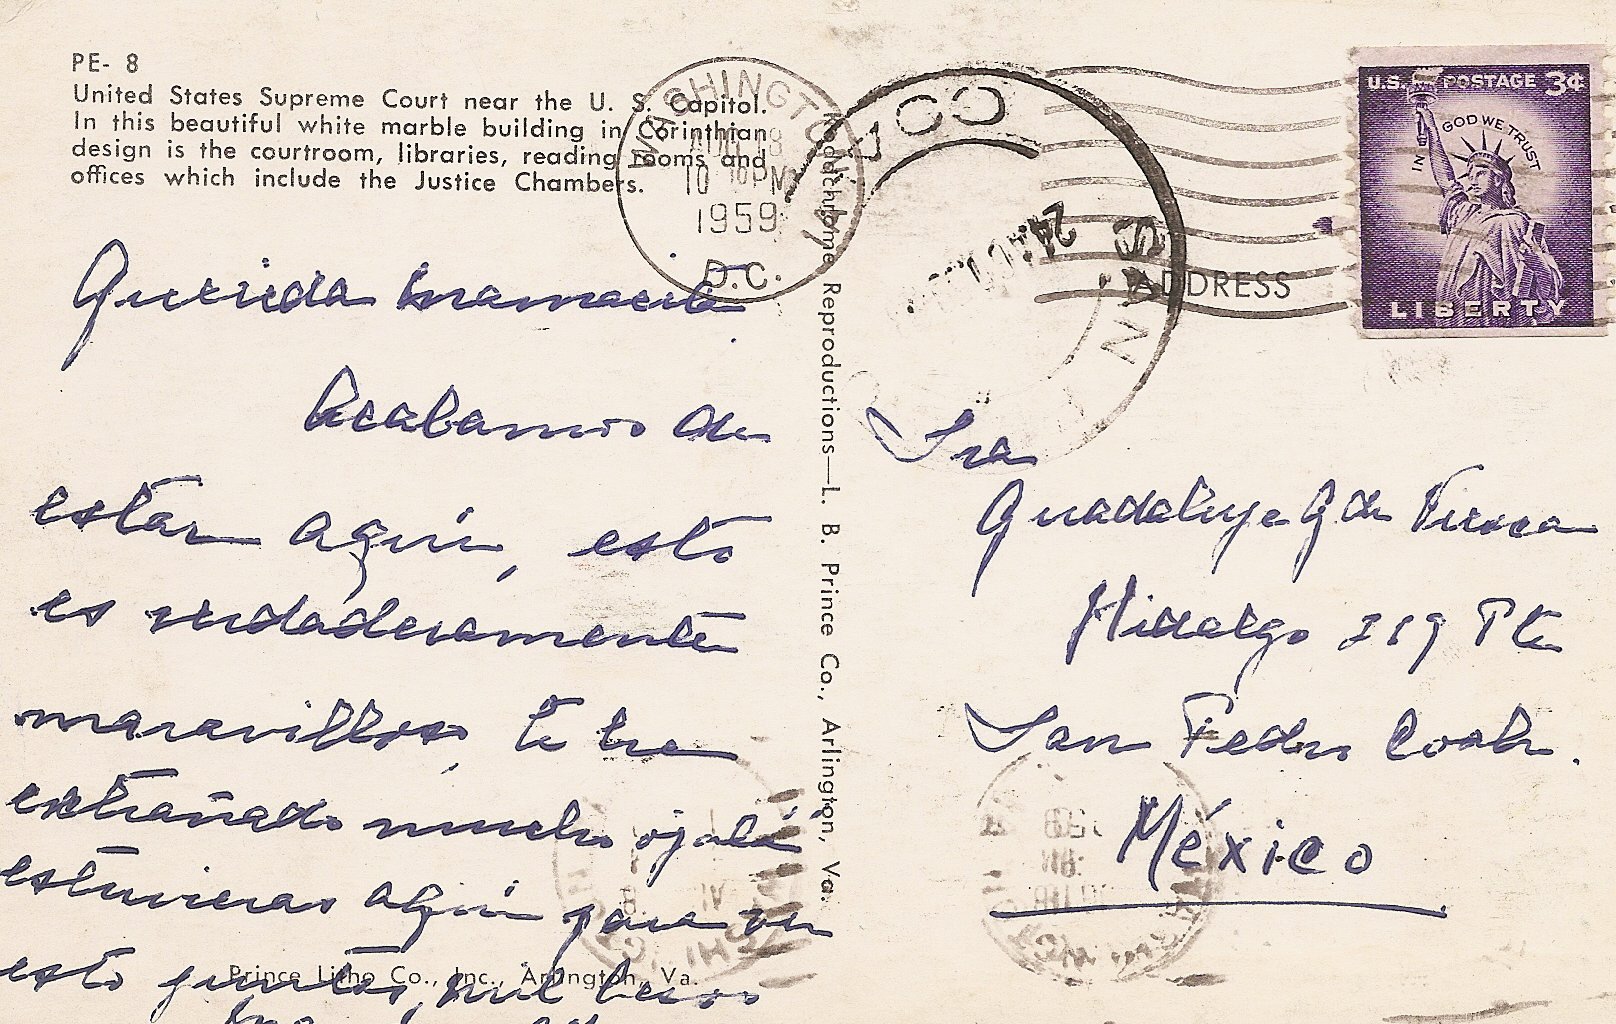 PE- 8
United States Supreme Court near the U. S. Capitol.
In this beautiful white marble building in Corinthian
design is the courtroom, libraries, reading rooms and
offices which include the Justice Chambers.
Querida mamacita
Acabamos de
estar aquí, esto
es verdaderamente
maravilloso, te he
extrañado mucho ojalá
estuvieras aquí para ver
esto juntas, mil besos
Prince Litho Co., Inc., Arlington, Va.
Kodachrome Reproductions—L. B. Prince Co., Arlington, Va.
WASHINGTON
AUG 18
10 PM
1959
D.C.
24 AGO
U.S. POSTAGE 3¢
IN GOD WE TRUST
LIBERTY
ADDRESS
Sra
Guadalupe G de
Hidalgo 319 Pte
San Pedro Coah.
México